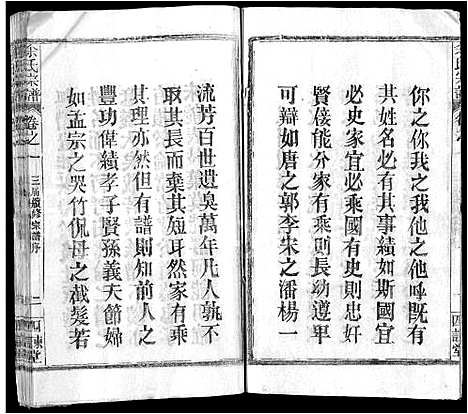 你之你我之我他之他呼既有
其姓名必有其事績如斯國宜
必史家宜必乘國有史則忠奸
賢佞能分家有乘則長幼遵卑
可辯如唐郭李朱之潘楊一
流芳百世遺臭萬年凡人孰不
取其長而棄其短耳然家有乘
其理亦然但有譜則知前人之
豐功偉績孝子賢孫義夫節婦
如孟宗之哭竹侃母之截髮若
余氏宗譜
卷之一
三屆續修宗譜序
二
四諫堂